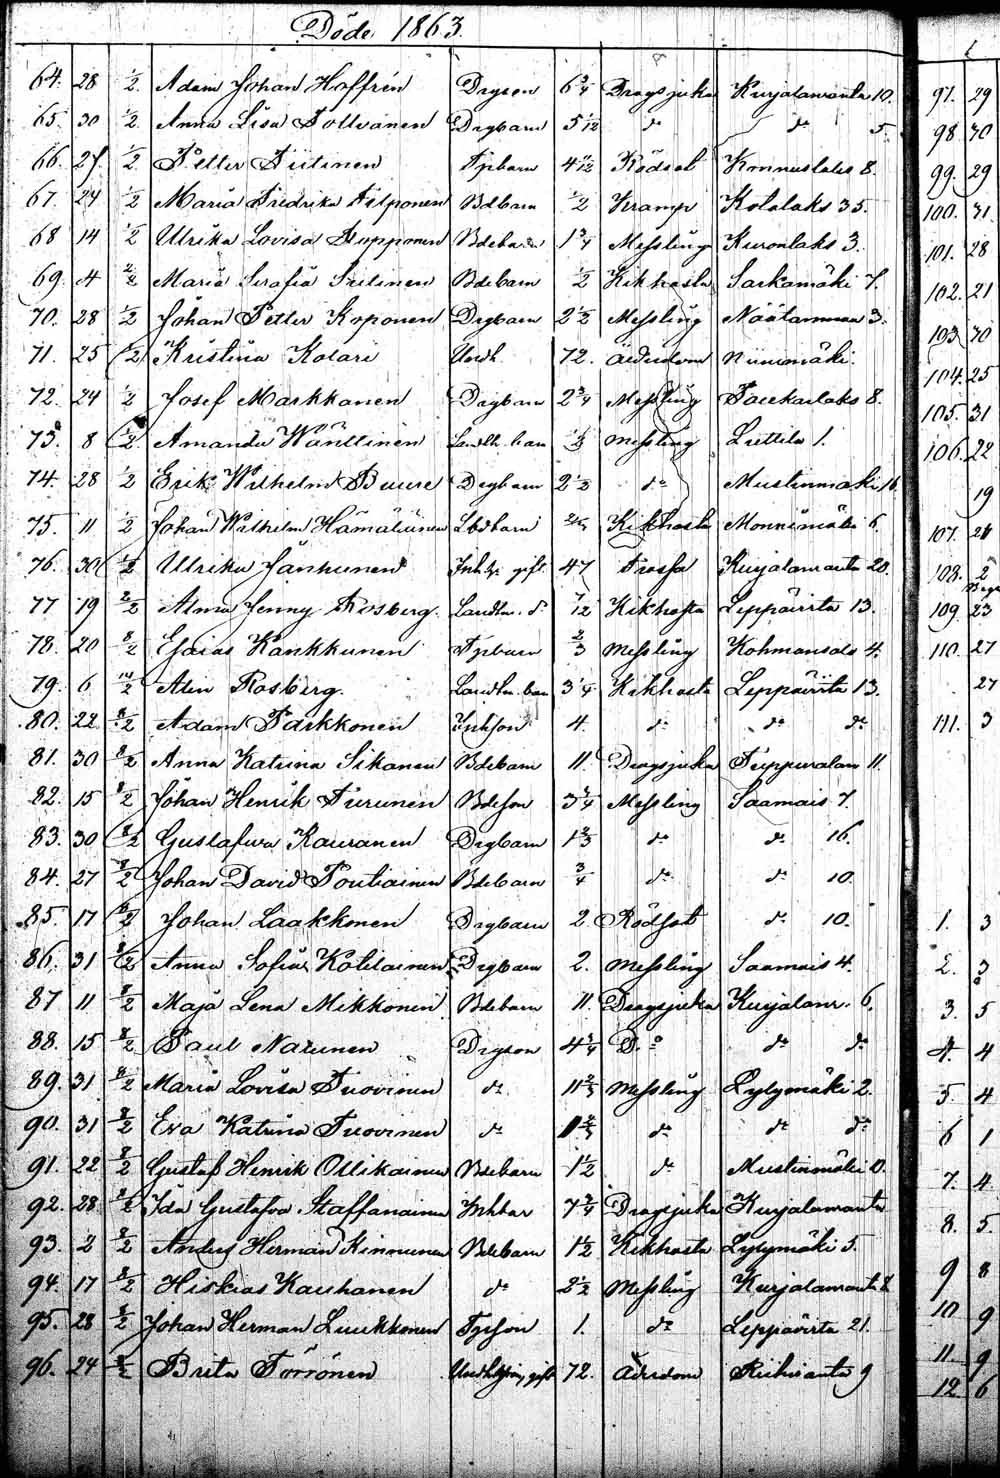 Döde 1863.
64. 28 1/2 Adam Johan Hoffrén Drgson 6 3/4 Dragsjuka Kurjalaranta 10.
65. 30 1/2 Anna Lisa Tollvanen Drgbarn 5 1/12 do do 5.
66. 27 1/2 Petter Tiitinen Tpbarn Rödsot 8.
67. 24 1/2 Maria Fredrika Bdbarn 1/2 Kramp Kotalaks 35.
68 14 1/2 Ulrika Lovisa Bdebarn 1 3/4 Messling Kuronlaks 3.
69. 4 2/2 Maria Serafia Bdebarn 1/2 Kikhosta Sarkamäki 7.
70. 28 1/2 Johan Petter Koponen Drgbarn 2 1/2 Messling 3.
71. 25 1/2 Kristina Kolari Undh. 72. Ålderdom Niinimäki.
72. 24 1/2 Josef Markkanen Drgbarn 2 3/4 Messling 8.
73. 8 1/2 Amanda Wänttinen Landb. barn 1/2 Messling Luttila 1.
74. 28 1/2 Erik Wilhelm Buure Drgbarn 2 1/2 do Mustinmäki 16.
75. 11 1/2 Johan Wilhelm Hämäläinen Lbdbarn Kikhosta Monnimäki 6.
76. 30 1/2 Ulrika Jänhunen Inh. gift. 47 Frossa Kurjalaranta 20.
77 19 2/2 Alma Jenny Rosberg. Landb. do 7/12 Kikhosta Leppävirta 13.
78. 20 8/2 Esaias Kankkunen Tpbarn 2/3 Messling 4.
79. 6 Alin Rosberg. Landb. barn 3 1/4 Kikhosta Leppävirta 13.
80. 22 8/2 Adam Parkkonen Inhson 4. do do do
81. 30 8/2 Anna Katrina Sikanen Bdebarn 11. Dragsjuka 11.
82. 15 8/2 Johan Henrik Turunen Bdeson 3 3/4 Messling Saamais 7.
83. 30 8/2 Gustafva Kauranen Drgbarn 1 2/3 do do 16.
84. 27 8/2 Johan David Poutiainen Bdebarn 3/4 do do 10.
85. 17 8/2 Johan Laakkonen Drgbarn 2. Rödsot do 10.
86. 31 8/2 Anna Sofia Kolilainen Drgbarn 2. Messling Saamais 4.
87 11 8/2 Maja Lena Mikkonen Bdebarn 11. Dragsjuka Kurjalanr. 6.
88. 15 8/2 Paul Narunen Drgson 4 1/4 D:o do do
89. 31 8/2 Maria Lovisa Tuovinen do 11 2/3 Messling Lylymäki 2.
90. 31 8/2 Eva Katrina Tuovinen do 1 2/3 do do do
91. 22 8/2 Gustaf Henrik Ollikainen Bdebarn 1 1/2 do Mustinmäki 10.
92. 28 8/2 Ida Gustafva Staffanainen Inhbar 7 3/4 Dragsjuka Kurjalaranta
93. 2 8/2 Anders Herman Kinnunen Bdebarn 1 1/2 Kikhosta Lylymäki 5.
94. 17 8/2 Hiskias Kauhanen do 2 1/2 Messling Kurjalaranta 8.
95. 28 8/2 Johan Herman Luukkonen Tpson 1. do Leppävirta 21.
96. 24 8/2 Brita Törrönen gift 72. Ålderdom Riihiranta 9
97. 29
98 30
99. 29
100. 31
101. 28
102. 21
103 30
104. 25
105. 31
106. 22
19
107. 26
108. 2
109. 23
110. 27
27
111. 3
1. 3
2. 3
3. 5
4. 4
5. 4
6 1
7. 4
8. 5.
9 8
10 9
11. 9
12. 6